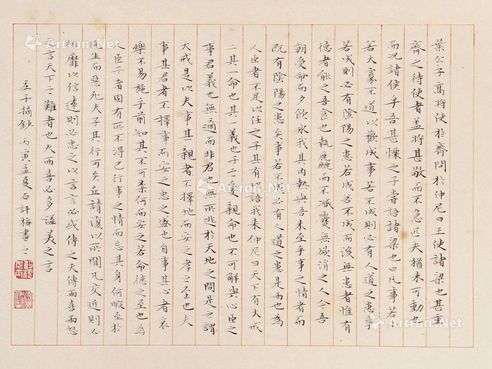 葉公子高將使於齊問於仲尼曰王使諸梁也甚重
齊之待使者蓋將甚敬而不急匹夫猶未可動也
而況諸侯乎吾甚慄之子嘗語諸梁也曰凡事若小
若大寡不道以懽成事若不成則必有人道之患事
若成則必有陰陽之患若成若不成而後無患者惟有
德者能之吾食也執麤而不臧爨無欲清之人今吾
朝受命而夕飲冰我其內熱與吾未至乎事之情而
既有陰陽之患矣事若不成必有人道之患是兩也為
人臣者不足以任之子其有以語我來仲尼曰天下有大戒
二其一命也其一義也子之愛親命也不可解於心臣之
事君義也無適而非君也無所逃於天地之間是之謂
大戒是以夫事其親者不擇地而安之孝之至也夫
事其君者不擇事而安之忠之盛也自事其心者哀
樂不易施乎前知其不可奈何而安之若命德之至也為
人臣子者固有所不得已行事之情而忘其身何暇至於
悅生而惡死夫子其行可矣丘請復以所聞凡交近則必
相靡以信遠則必忠之以言言必或傳之夫傳兩喜兩怒
之言天下之難者也夫兩喜必多溢美之言
莊子摘鈔 丙寅孟夏石評梅書